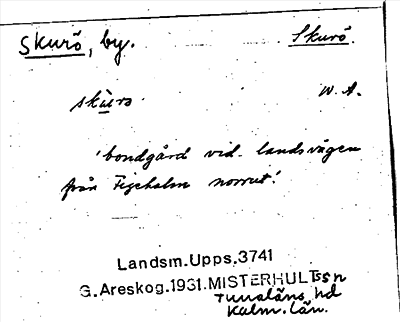 Skurö, by. Skurö.
skùrs. W. A.
'bondgård vid landsvägen
från Figeholm norrut.'
Landsm.Upps.3741
G.Areskog.1931.MISTERHULTssn
Tunaläns hd
Kalm. län.